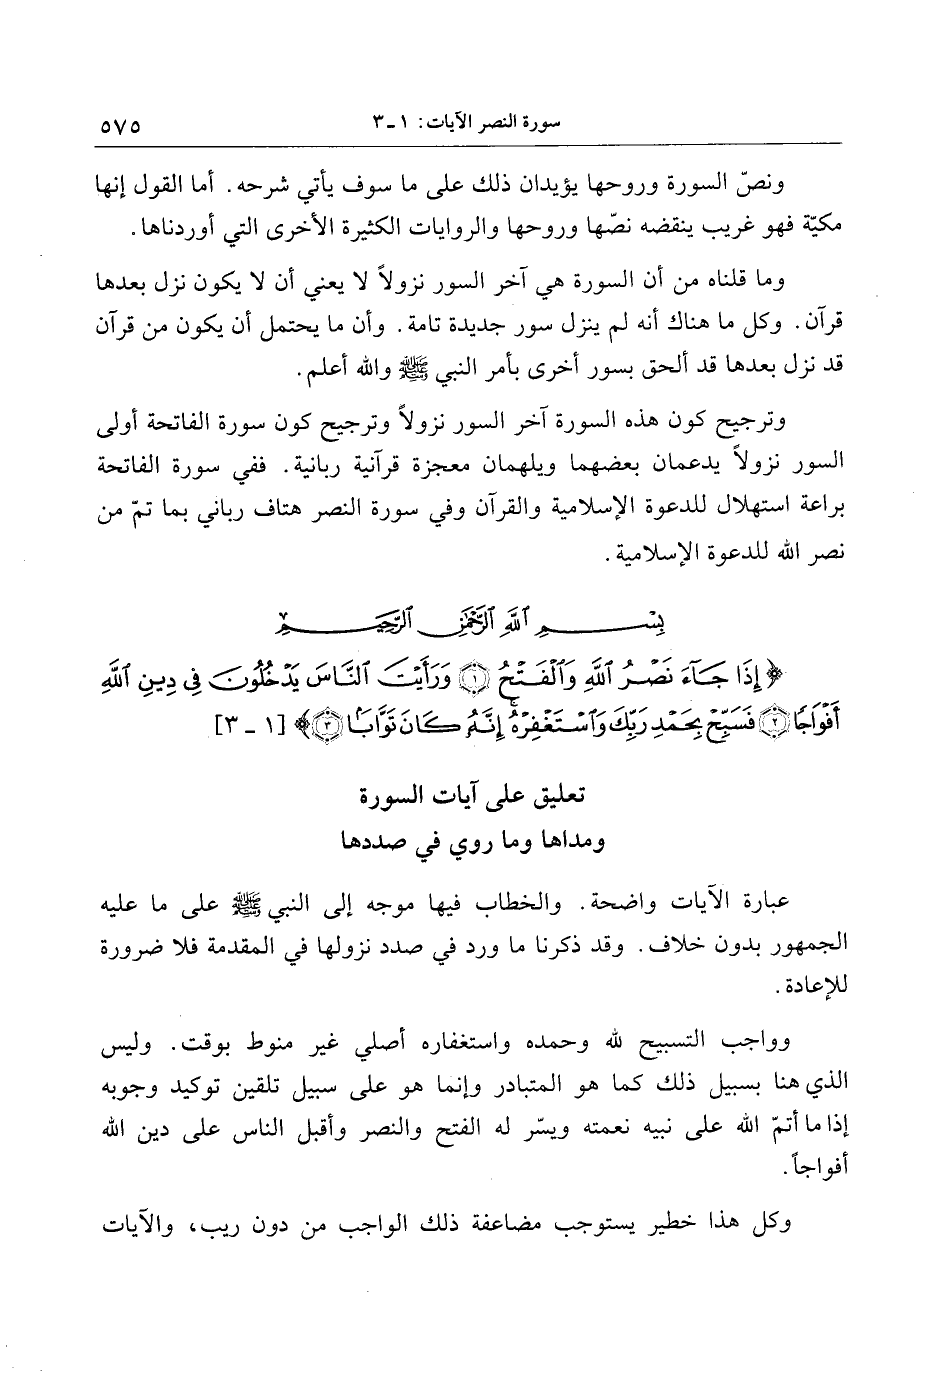 سورة النصر الآيات: ١ـ٣ ٥٧٥
ونصّ السورة وروحها يؤيدان ذلك على ما سوف يأتي شرحه. أما القول إنها
مكيّة فهو غريب ينقضه نصّها وروحها والروايات الكثيرة الأخرى التي أوردناها.
وما قلناه من أن السورة هي آخر السور نزولاً لا يعني أن لا يكون نزل بعدها
قرآن. وكل ما هناك أنه لم ينزل سور جديدة تامة. وأن ما يحتمل أن يكون من قرآن
قد نزل بعدها قد ألحق بسور أخرى بأمر النبي ﷺ والله أعلم.
وترجيح كون هذه السورة آخر السور نزولاً وترجيح كون سورة الفاتحة أولى
السور نزولاً يدعمان بعضهما ويلهمان معجزة قرآنية ربانية. ففي سورة الفاتحة
براعة استهلال للدعوة الإسلامية والقرآن وفي سورة النصر هتاف رباني بما تمّ من
نصر الله للدعوة الإسلامية.
بِسْمِ ٱللَّهِ ٱلرَّحْمَٰنِ ٱلرَّحِيمِ
﴿إِذَا جَآءَ نَصْرُ ٱللَّهِ وَٱلْفَتْحُ ۝١ وَرَأَيْتَ ٱلنَّاسَ يَدْخُلُونَ فِى دِينِ ٱللَّهِ
أَفْوَاجًا ۝٢ فَسَبِّحْ بِحَمْدِ رَبِّكَ وَٱسْتَغْفِرْهُ ۚ إِنَّهُۥ كَانَ تَوَّابًۢا ۝٣﴾ [١ ـ ٣]
تعليق على آيات السورة
ومداها وما روي في صددها
عبارة الآيات واضحة. والخطاب فيها موجه إلى النبي ﷺ على ما عليه
الجمهور بدون خلاف. وقد ذكرنا ما ورد في صدد نزولها في المقدمة فلا ضرورة
للإعادة.
وواجب التسبيح لله وحمده واستغفاره أصلي غير منوط بوقت. وليس
الذي هنا بسبيل ذلك كما هو المتبادر وإنما هو على سبيل تلقين توكيد وجوبه
إذا ما أتمّ الله على نبيه نعمته ويسّر له الفتح والنصر وأقبل الناس على دين الله
أفواجاً.
وكل هذا خطير يستوجب مضاعفة ذلك الواجب من دون ريب، والآيات